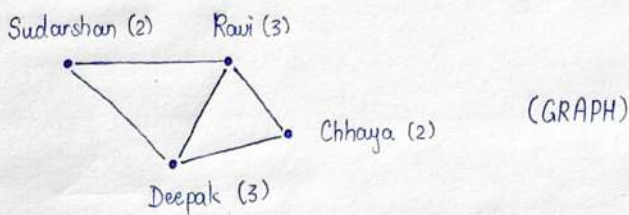 Sudarshan (2) Ravi (3)
Chhaya (2) (GRAPH)
Deepak (3)